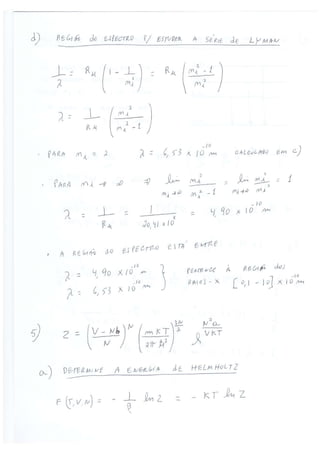 d) REGIÃO do ESPECTRO P/ ESTUDAR A SÉRIE de LYMAN
1/λ = Rα (1 - 1/mi²) = Rα ((mi² - 1)/mi²)
λ = 1/Rα (mi²/(mi² - 1))
- PARA mi = 2 λ = 6,53 × 10⁻¹⁰ m CALCULADO EM c)
- PARA mi → ∞ ⇒ lim mi→∞ mi²/(mi² - 1) = lim mi→∞ mi²/mi² = 1
λ = 1/Rα = 1/20,41×10⁸ = 4,90 × 10⁻¹⁰ m
• A REGIÃO DO ESPECTRO ESTÁ ENTRE
λ = 4,90 × 10⁻¹⁰ m } PERTENCE À REGIÃO dos
λ = 6,53 × 10⁻¹⁰ m RAIOS-X [0,1 - 10] × 10⁻¹⁰ m
5) Z = ((V - Nb)/N)^N (mKT/2πℏ²)^(3N/2) e^(N²a/VKT)
a) DETERMINE A ENERGIA de HELMHOLTZ
F(T,V,N) = - 1/β ln Z = - KT ln Z